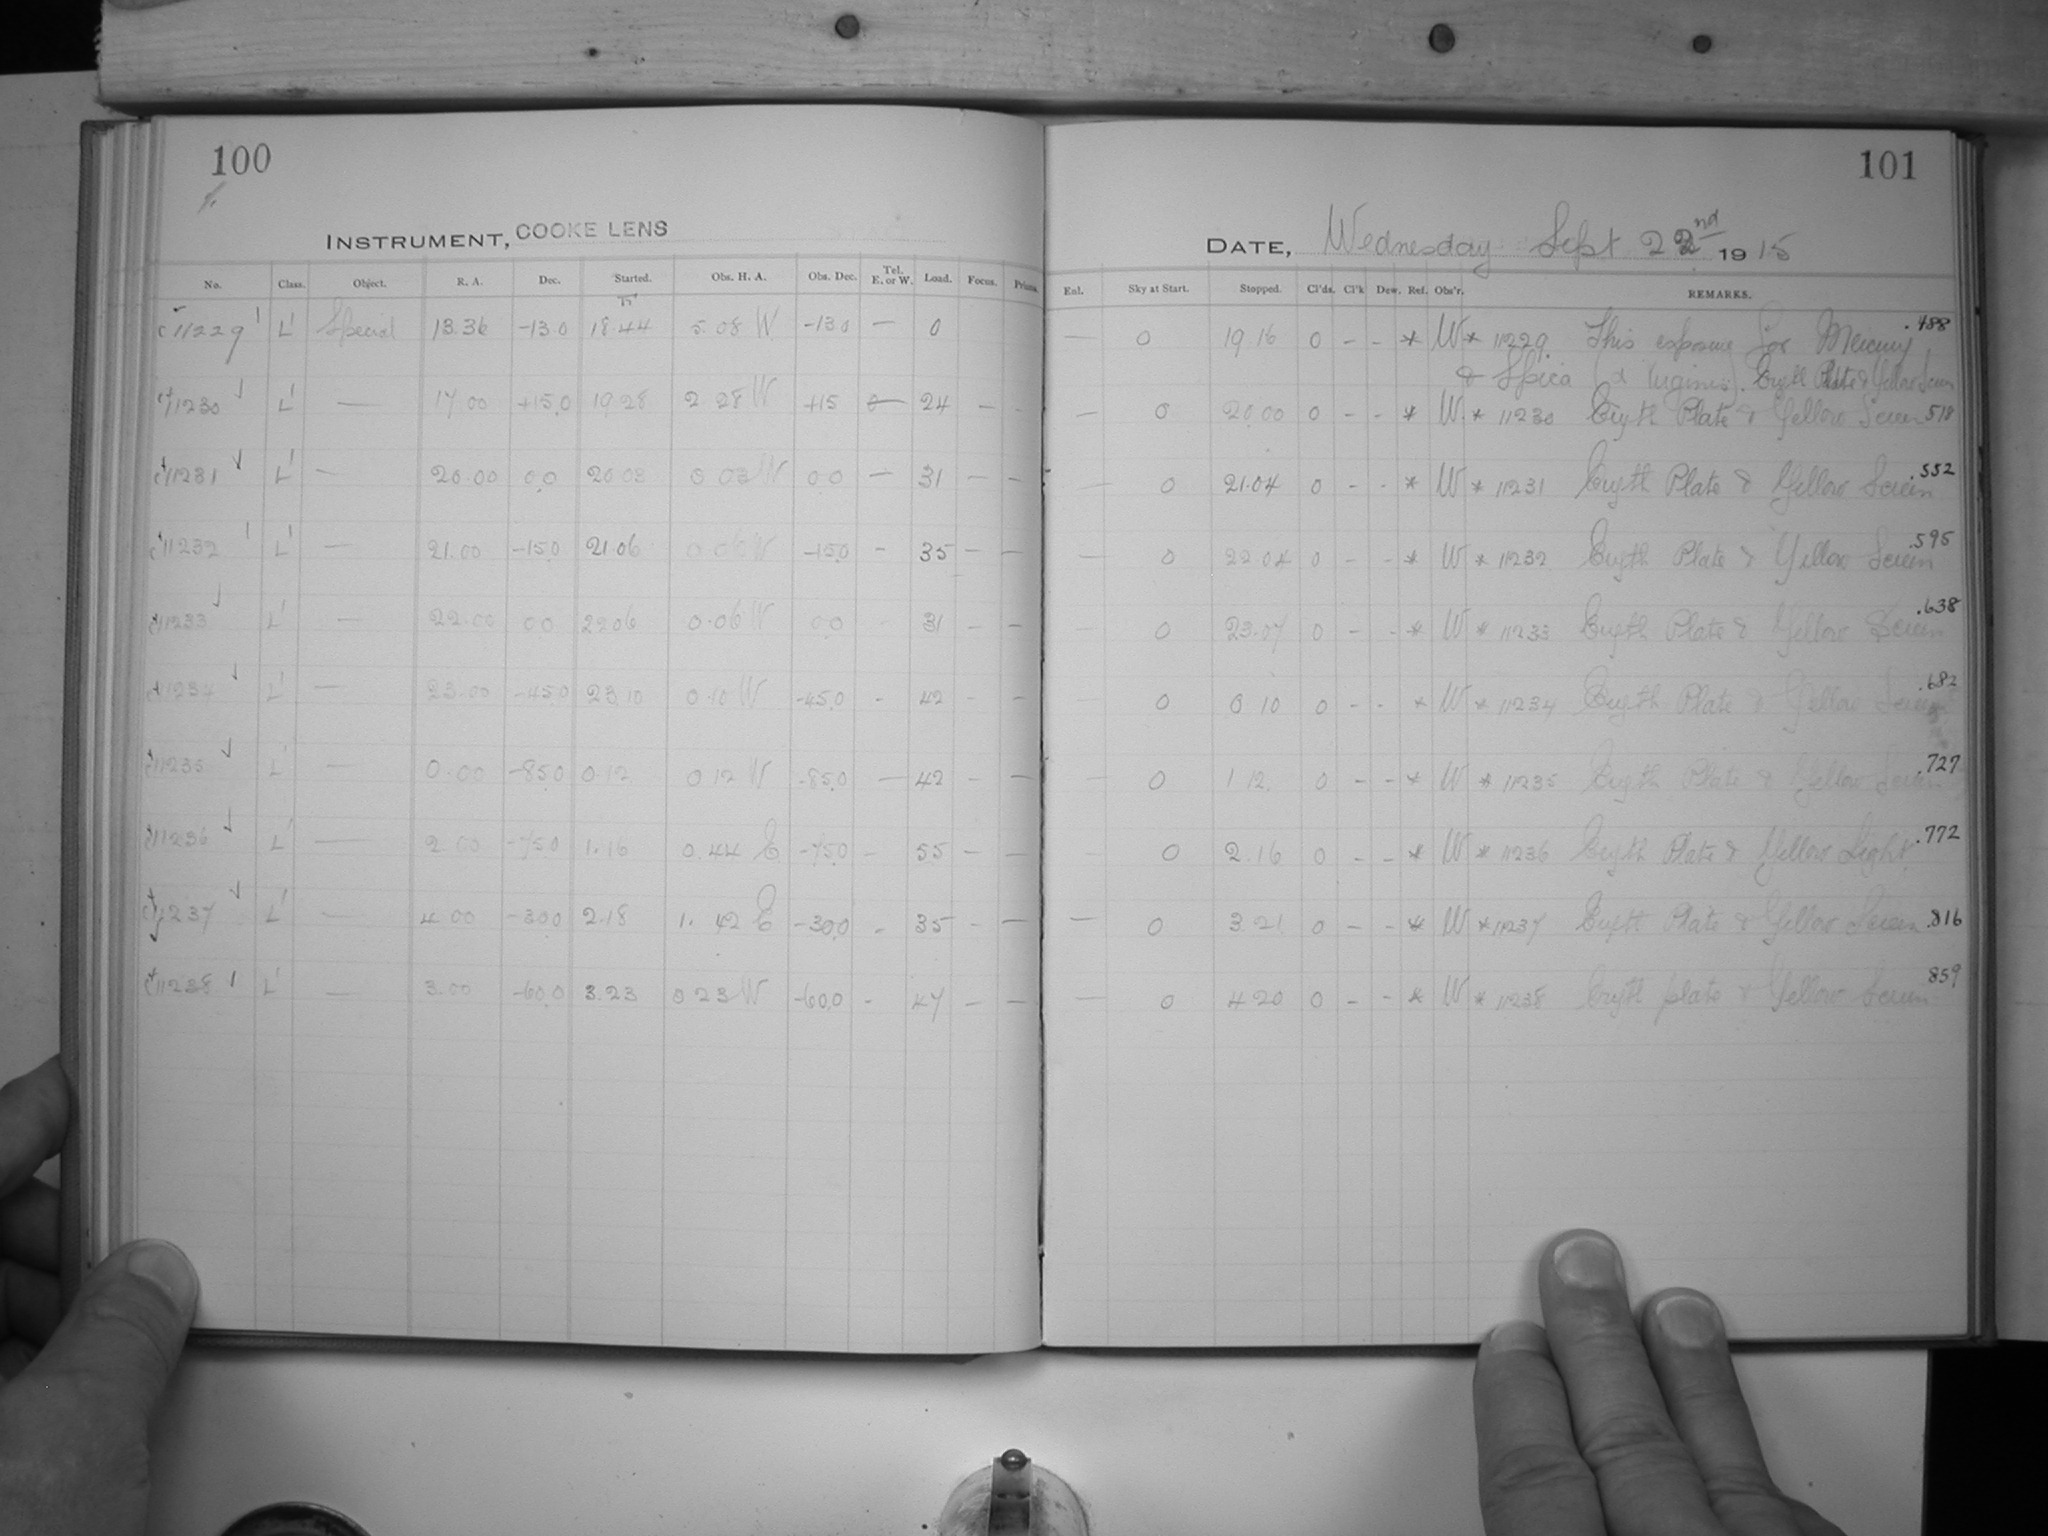 100
INSTRUMENT, COOKE LENS
No. Class. Object. R. A. Dec. Started. Obs. H. A. Obs. Dec. Tel. E. or W. Load. Focus. Prisms.
11229 L' Special 13.36 -13.0 18.44 5.08 W -13.0 — 0
11230 L' — 17 00 +15.0 19 28 2 28 W +15 — 24 – –
11231 L' — 20.00 0.0 20 03 0 03 W 0.0 — 31 – –
11232 L' — 21.00 -15.0 21.06 0 06 W -15.0 – 35 – –
11233 L' — 22.00 0.0 22 06 0.06 W 0.0 31 – –
11234 L' — 23.00 -45.0 23 10 0 10 W -45.0 – 42 – –
11235 L' — 0.00 -85.0 0.12 0 12 W -85.0 — 42 – –
11236 L' — 2 00 -75.0 1.16 0.44 E -75.0 – 55 – –
11237 L' — 4 00 -30.0 2.18 1. 42 E -30.0 – 35 – –
11238 L' — 3.00 -60.0 3.23 0 23 W -60.0 – 47 – –
101
DATE, Wednesday Sept 22nd 1915
Enl. Sky at Start. Stopped. Cl'ds. Cl'k Dew. Ref. Obs'r. REMARKS.
— 0 19 16 0 – – * W * 11229. This exposure for Mercury .488
& Spica (α Virginis). Eryth Plate & Yellow Screen
— 0 20.00 0 – – * W. * 11230 Eryth Plate & Yellow Screen 518
— 0 21.04 0 – – * W * 11231 Eryth Plate & Yellow Screen .552
— 0 22 04 0 – – * W * 11232 Eryth Plate & Yellow Screen .595
— 0 23.07 0 – – * W * 11233 Eryth Plate & Yellow Screen .638
— 0 0 10 0 – – * W * 11234 Eryth Plate & Yellow Screen .682
— 0 1 12. 0 – – * W * 11235 Eryth Plate & Yellow Screen .727
— 0 2.16 0 – – * W * 11236 Eryth Plate & Yellow Light .772
— 0 3.21 0 – – * W * 11237 Eryth Plate & Yellow Screen .816
— 0 4 20 0 – – * W * 11238 Eryth plate & Yellow Screen 859